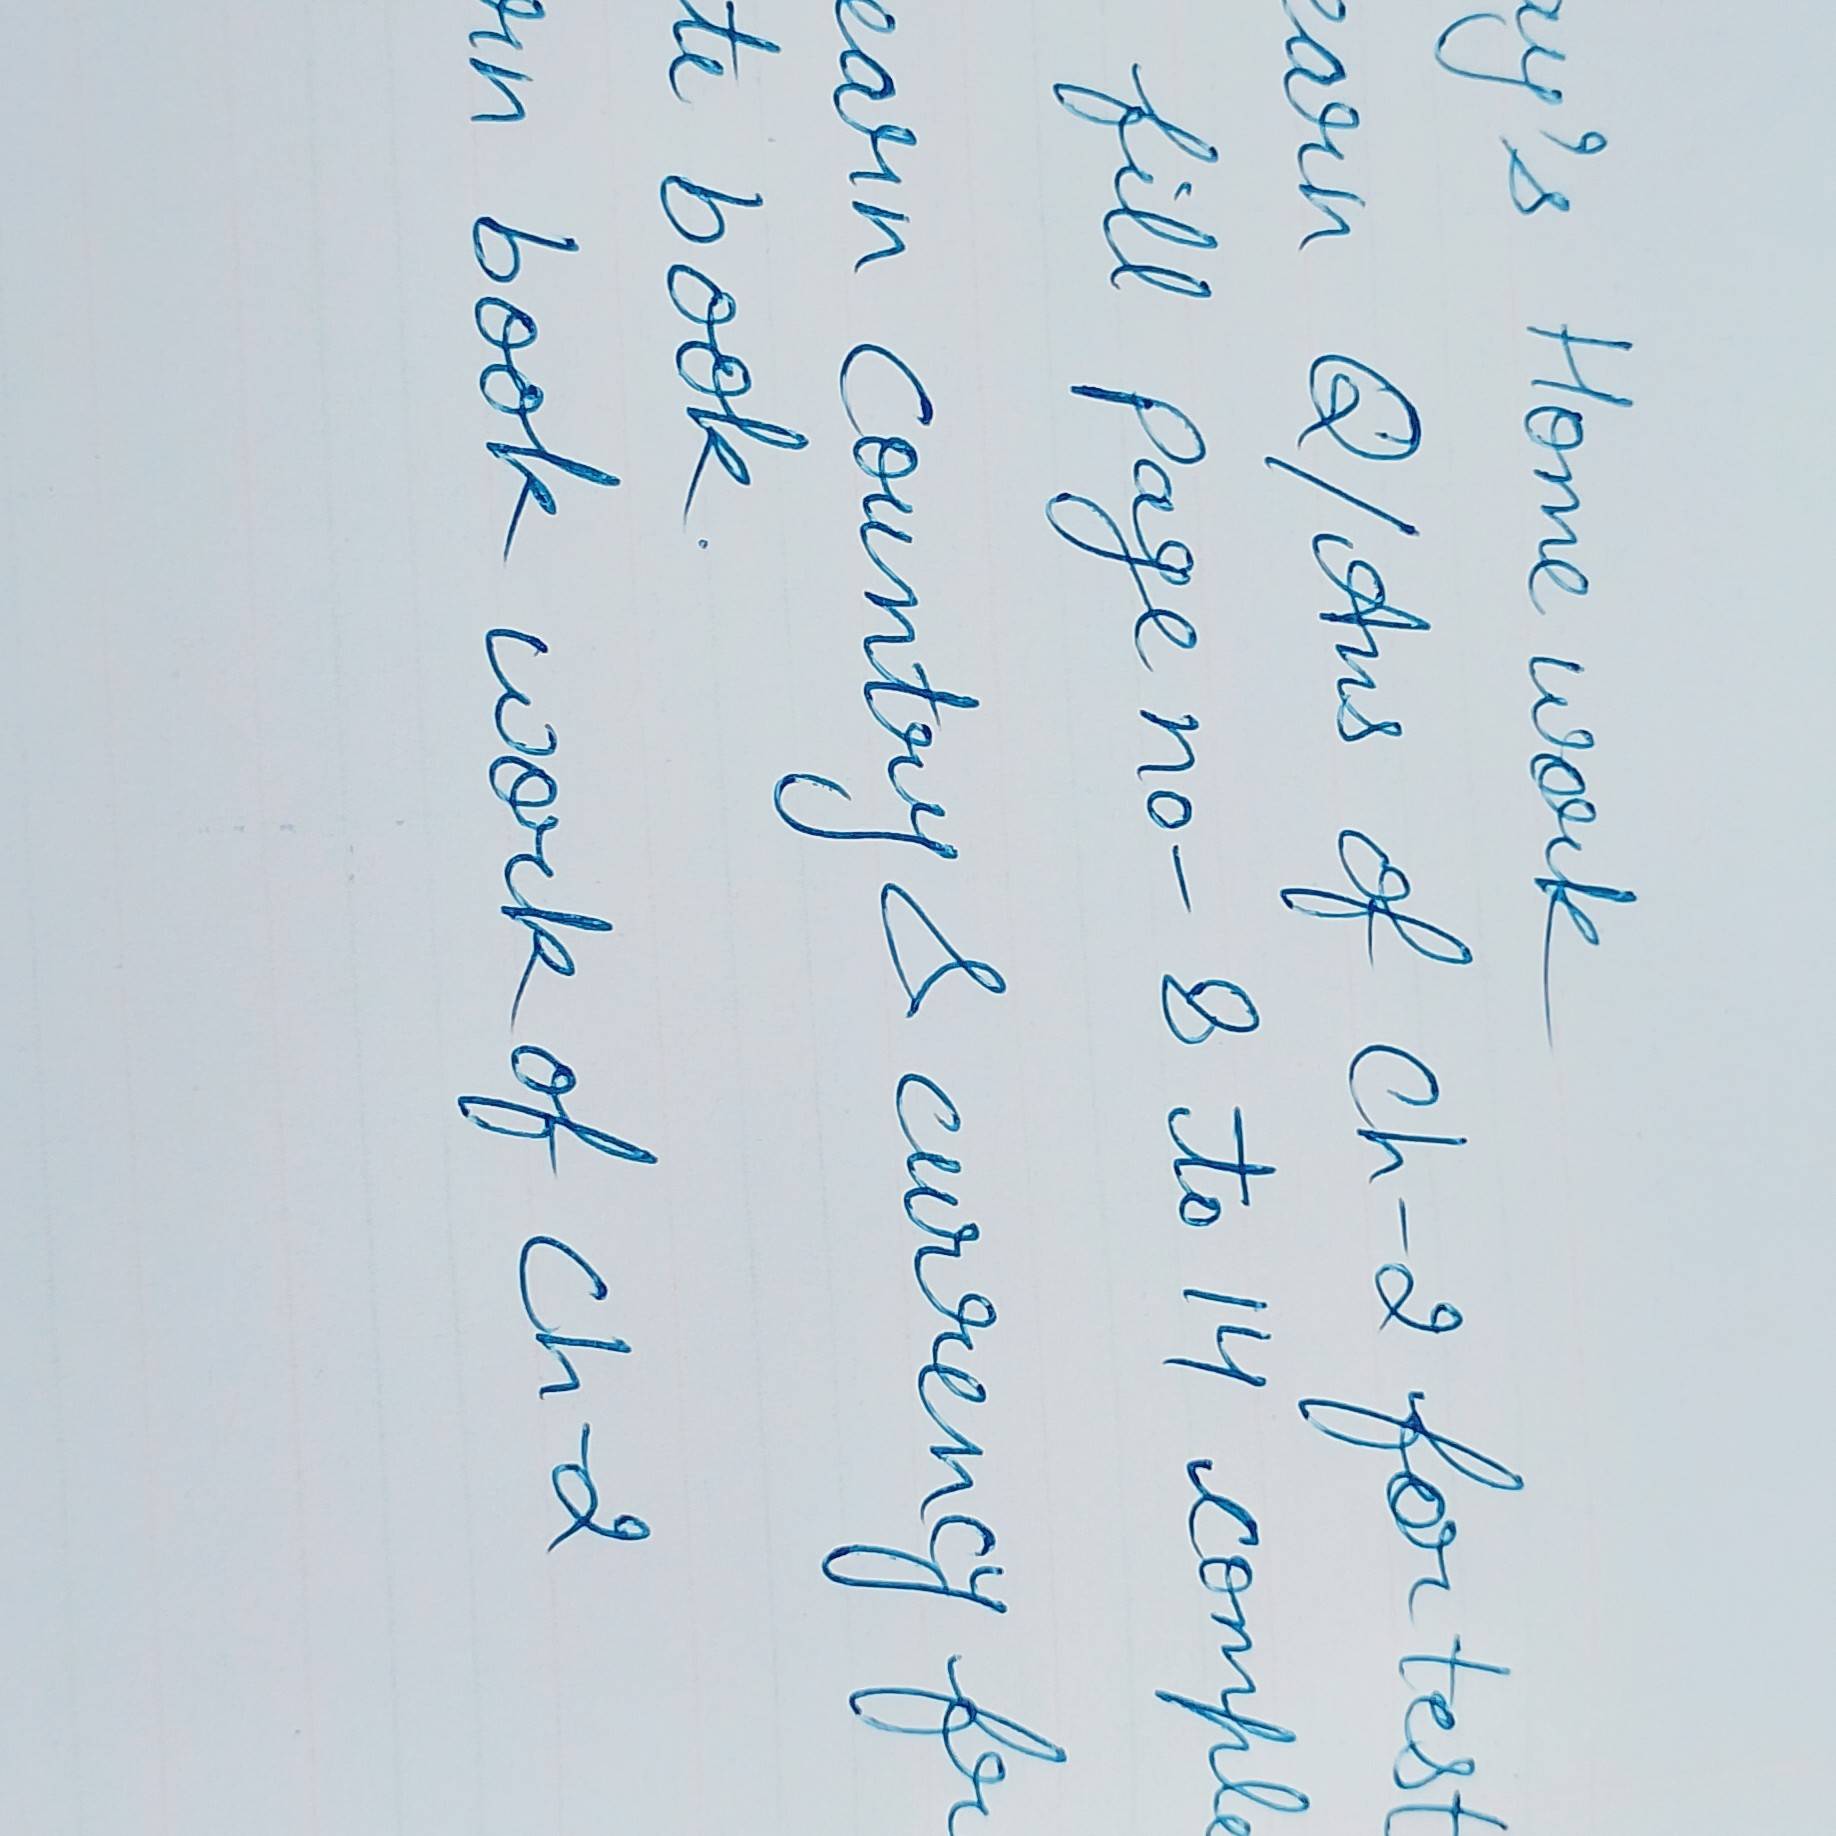 ay's Home work
earn Q/Ans of Ch-2 for test
fill Page no- 8 to 14 comple
earn Country & currency for
te book.
rn book work of Ch-2